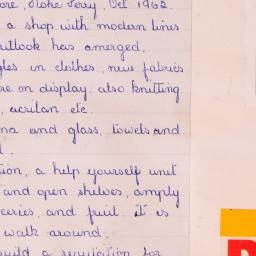 ore, Stoke Ferry, Oct 1962.
a shop with modern lines
utlook has amerged.
yles in clothes, new fabrics
re on display. also knitting
, acrilan etc.
na and glass, towels and
tion, a help yourself unit
and open shelves, amply
ceries, and fruit. It is
walk around.
build a reputation for